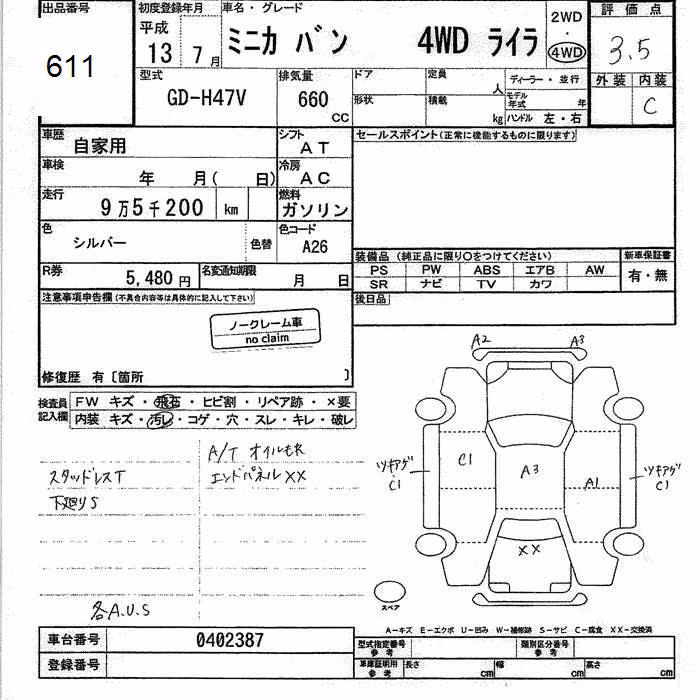 出品番号
611
初度登録年月
平成
13 7月
車名・グレード
ミニカ バン 4WD ライラ
2WD
・
4WD
評価点
3.5
外装 内装
C
型式
GD-H47V
排気量
660
CC
ドア
定員
人
形状
積載
kg
ディーラー・並行
モデル年式 年
ハンドル 左・右
車歴
自家用
シフト
AT
セールスポイント(正常に機能するものに限ります)
車検
年 月( 日)
冷房
AC
走行
9万5千200 km
燃料
ガソリン
色
シルバー
色替
色コード
A26
装備品(純正品に限り○をつけてください)
新車保証書
PS PW ABS エアB AW
有・無
SR ナビ TV カワ
R券
5,480円
名変通知期限
月 日
後日品
注意事項申告欄(不具合内容等は具体的に記入して下さい)
ノークレーム車
no claim
修復歴 有〔箇所 〕
検査員記入欄
FW キズ・飛石・ヒビ割・リペア跡・×要
内装 キズ・汚レ・コゲ・穴・スレ・キレ・破レ
A/T オイルモレ
スタッドレスT
エンドパネルXX
下廻りS
各A.U.S
A2
A3
ツキアゲ
C1
C1
A3
A1
ツキアゲ
C1
XX
スペア
A-キズ E-エクボ U-凹み W-補修跡 S-サビ C-腐食 XX-交換済
車台番号
0402387
登録番号
型式指定番号
参考
類別区分番号
参考
車庫証明用
参考
長さ
cm
幅
cm
高さ
cm